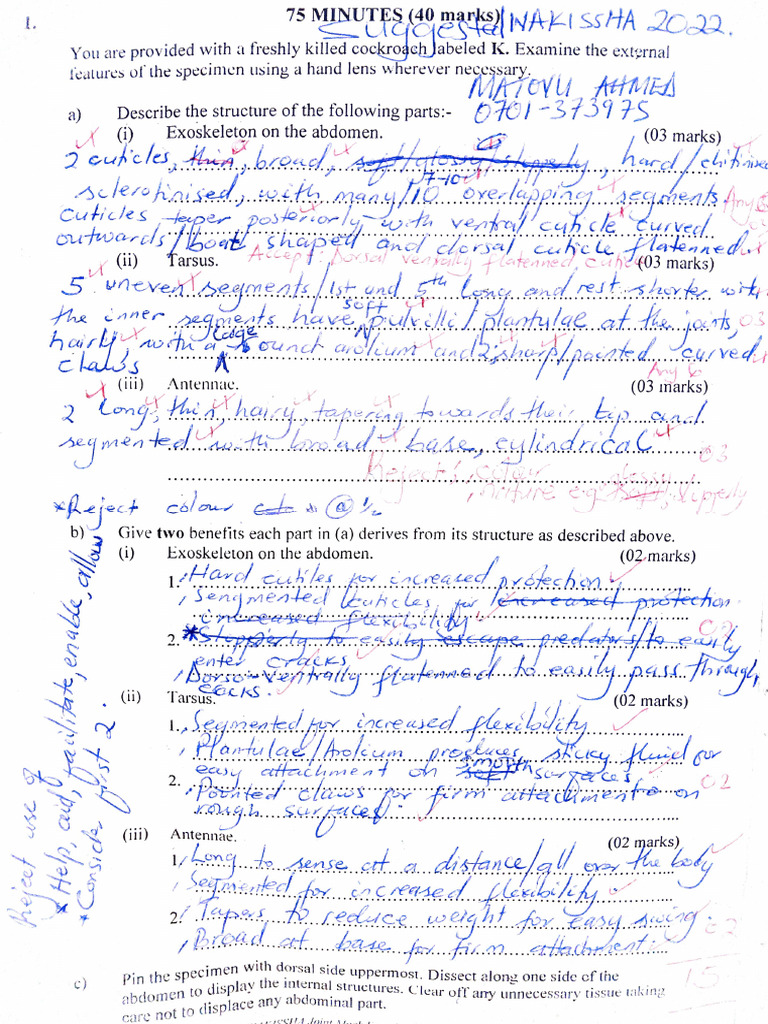 1.
75 MINUTES (40 marks)
Suggested/WAKISSHA 2022.
You are provided with a freshly killed cockroach labeled K. Examine the external
features of the specimen using a hand lens wherever necessary.
MATOVU AHMED
0701-373975
a) Describe the structure of the following parts:-
(i) Exoskeleton on the abdomen. (03 marks)
2 cuticles, thin, broad, soft/glossy/slipperly, hard/chitinised
7-10
sclerotinised, with many/10 overlapping segments
Any 6
cuticles taper posteriorly with ventral cuticle curved
outwards/boat shaped and dorsal cuticle flatenned
Accept: Dorsal ventrally flatenned cuticle
(ii) Tarsus. (03 marks)
5 uneven segments/1st and 5th long and rest shorter with
soft
the inner segments have pulvilli/plantulae at the joints,
03
hairly, with a large arolium and 2, sharp/pointed curved
claws
Any 6
(iii) Antennae. (03 marks)
2 long, thin, hairy, tapering towards their tip and
segmented with broad base, cylindrical
03
Reject: colour
glossy
, nurture eg: soft, slipperly
*Reject colour @ ½
b) Give two benefits each part in (a) derives from its structure as described above.
(i) Exoskeleton on the abdomen. (02 marks)
1. , Hard cutiles for increased protection.
, Sengmented cuticles for increased protection.
increased flexibility.
02
2. * Slipperly to easily escape predators/to easily
enter cracks
, Dorso-ventrally flatenned to easily pass through
cacks.
(ii) Tarsus. (02 marks)
1. , Segmented for increased flexibility
, Plantulae/Arolium produces sticky fluid for
easy attachment on soft smooth surfaces.
02
2. , Pointed claws for firm attachment on
rough surfaces.
(iii) Antennae. (02 marks)
1. , Long to sense at a distance/all over the body
, Segmented for increased flexibility
2. , Tapers to reduce weight for easy swing.
02
, Broad at base for firm attachment.
15
Reject use of
* Help, aid, facilitate, enable, allow
* Consider first 2.
c) Pin the specimen with dorsal side uppermost. Dissect along one side of the
abdomen to display the internal structures. Clear off any unnecessary tissue taking
care not to displace any abdominal part.